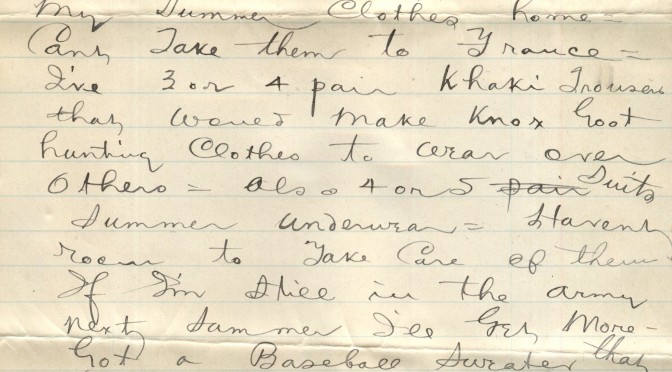 My Summer Clothes home =
Cant Take them to France =
I've 3 or 4 pair Khaki Trousers
that would make Knox Good
hunting Clothes to wear over
Others = also 4 or 5 pair Suits
Summer underwear = Havent
room to Take Care of them
If I'm Still in the army
next Summer I'll Get More -
Got a Baseball Sweater that